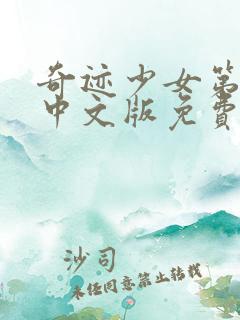 奇迹少女第
中文版免费
沙司
未经同意禁止转载